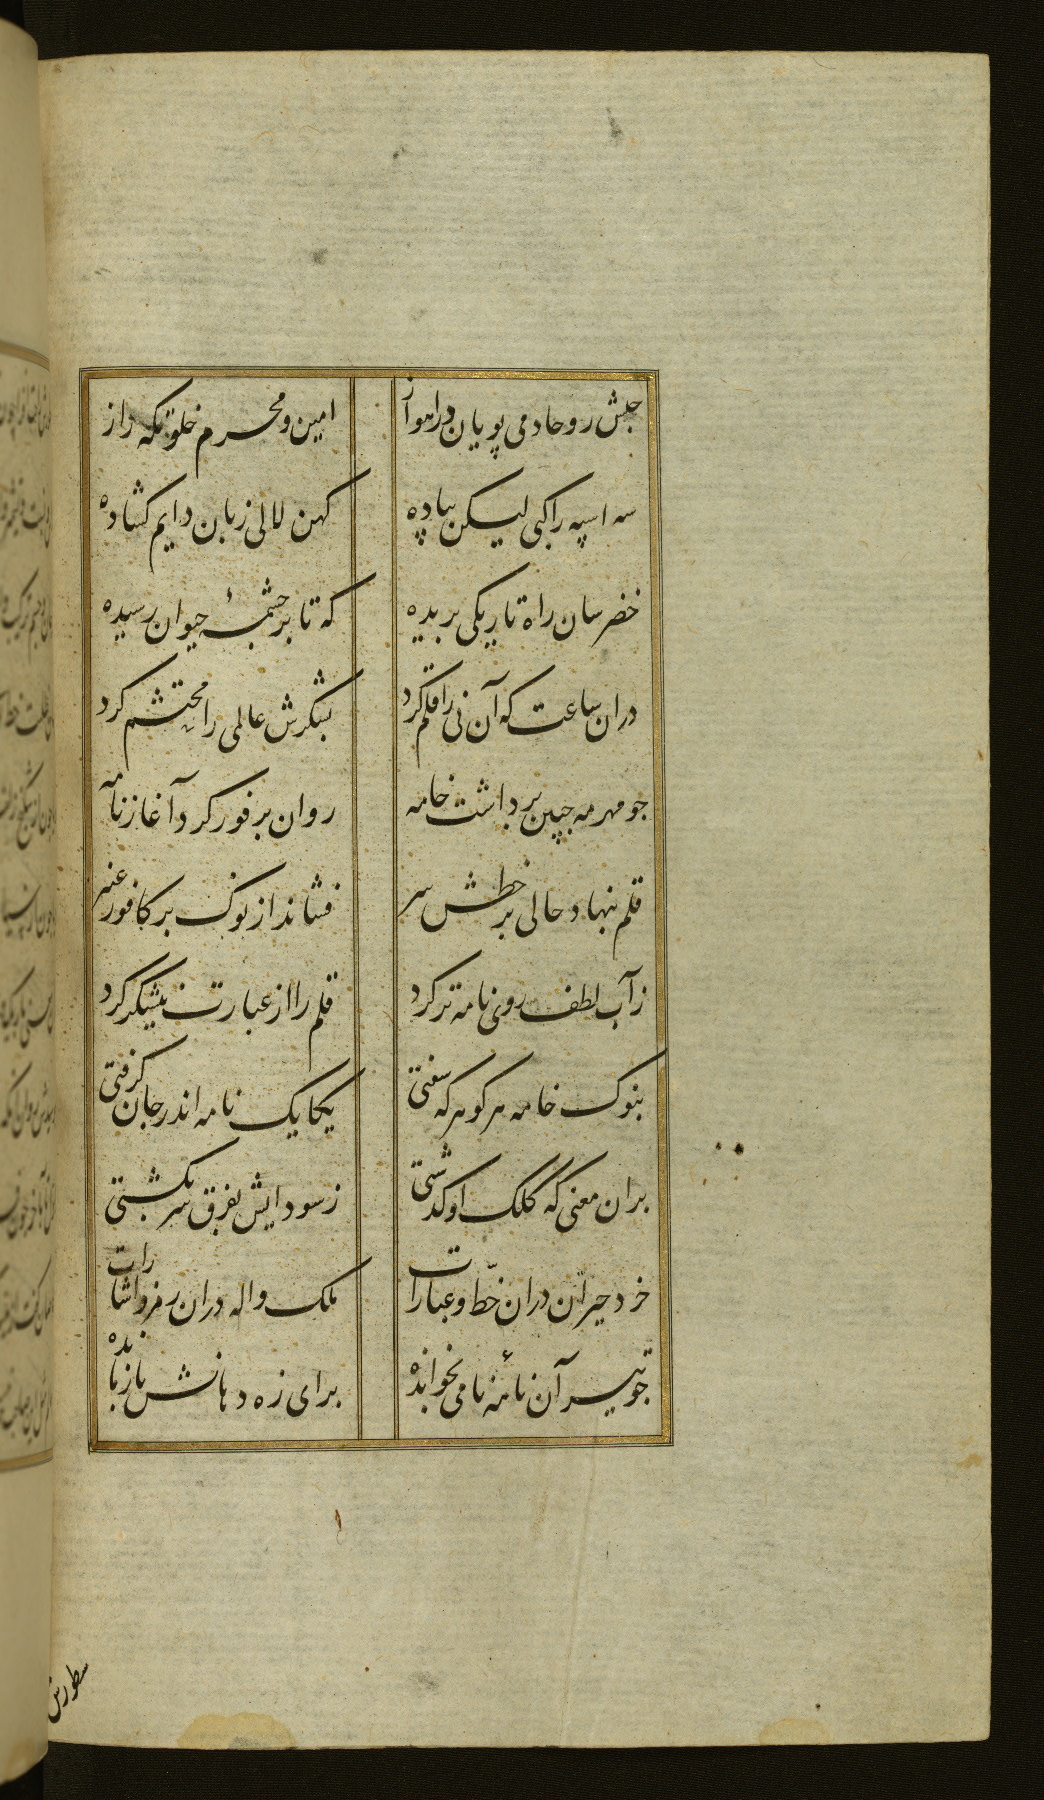 حبش رو خادمی پویان در اهواز
امین و محرم خلوتکه راز
سه اسپه راکبی لیکن پیاده
کهن لالی زبان دایم کشاده
خضر سان راه تاریکی بریده
که تا بر چشمهٔ حیوان رسیده
دران ساعت که آن نی را قلم کرد
بشکرش عالمی را محتشم کرد
جو مهر مه جبین برداشت خامه
روان بر فور کرد آغاز نامه
قلم بنهاد حالی بر خطش سر
فشاند از نوک بر کافور عنبر
ز آب لطف روی نامه تر کرد
قلم را از عبارت نیشکر کرد
بنوک خامه هر کوهر که سفتی
یکایک نامه اندر جان کرفتی
بران معنی که کلک او کذشتی
ز سودایش بفرق سر بکشتی
خرد حیران دران خط و عبارات
ملک واله دران رمز و اشارات
جو تیر آن نامهٔ نامی بخوانده
برای زه دهانش باز مانده